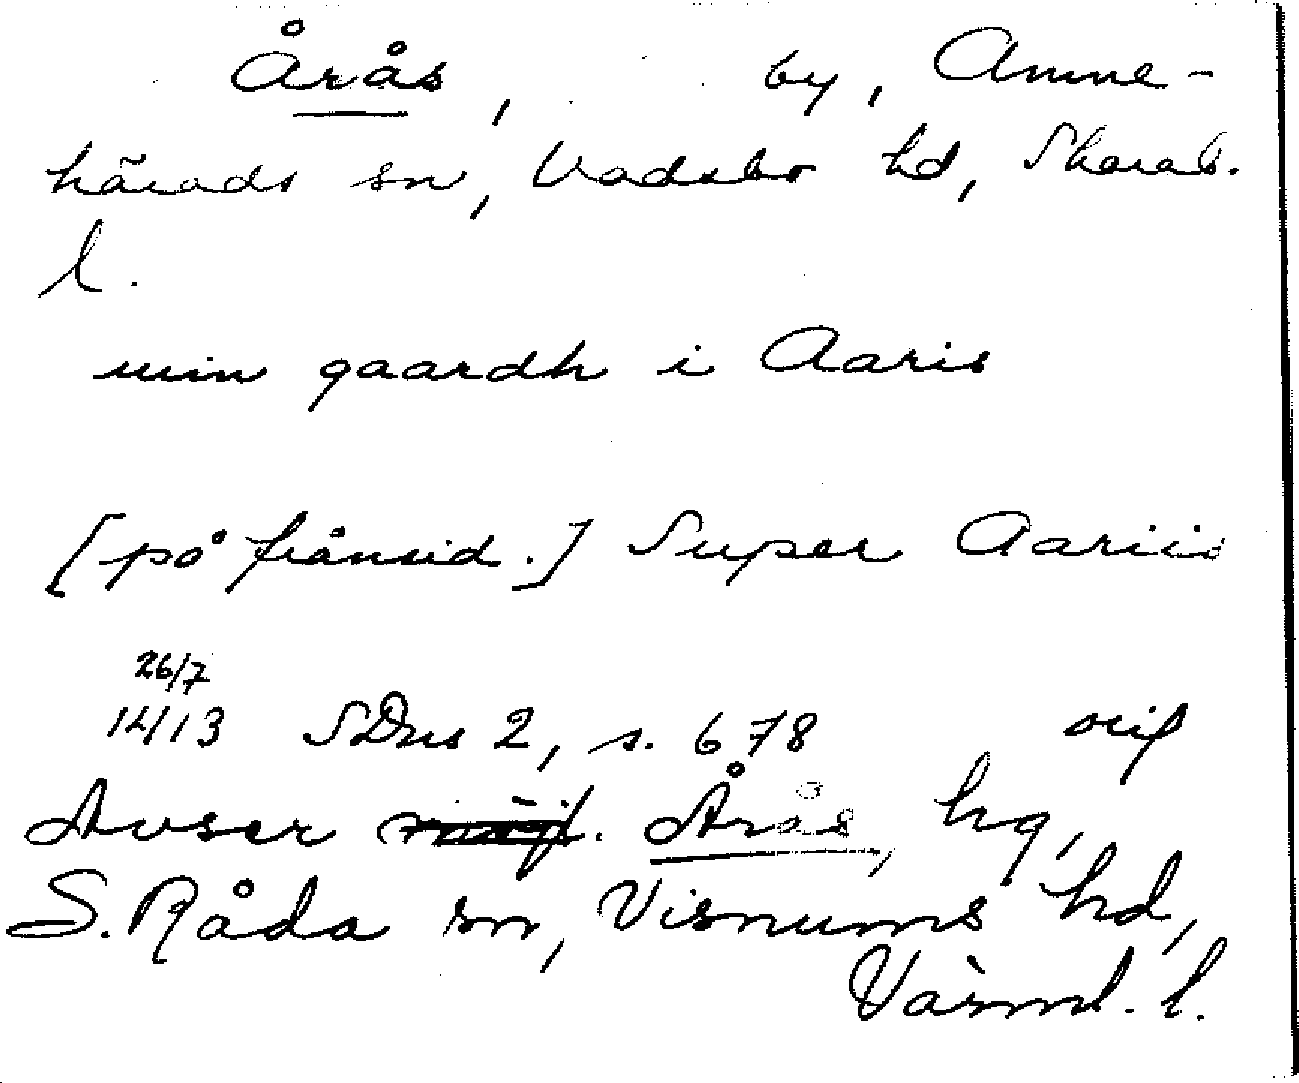 Årås, by, Amne-
härads sn, Vadsbo hd, Skarab.
l.
min gaardh i Aaris
[på frånsid.] Super Aariis
26/7
1413 SDns 2, s. 678 orig
Avser Årås, hg,
S. Råda sn, Visnums hd,
Värml. l.